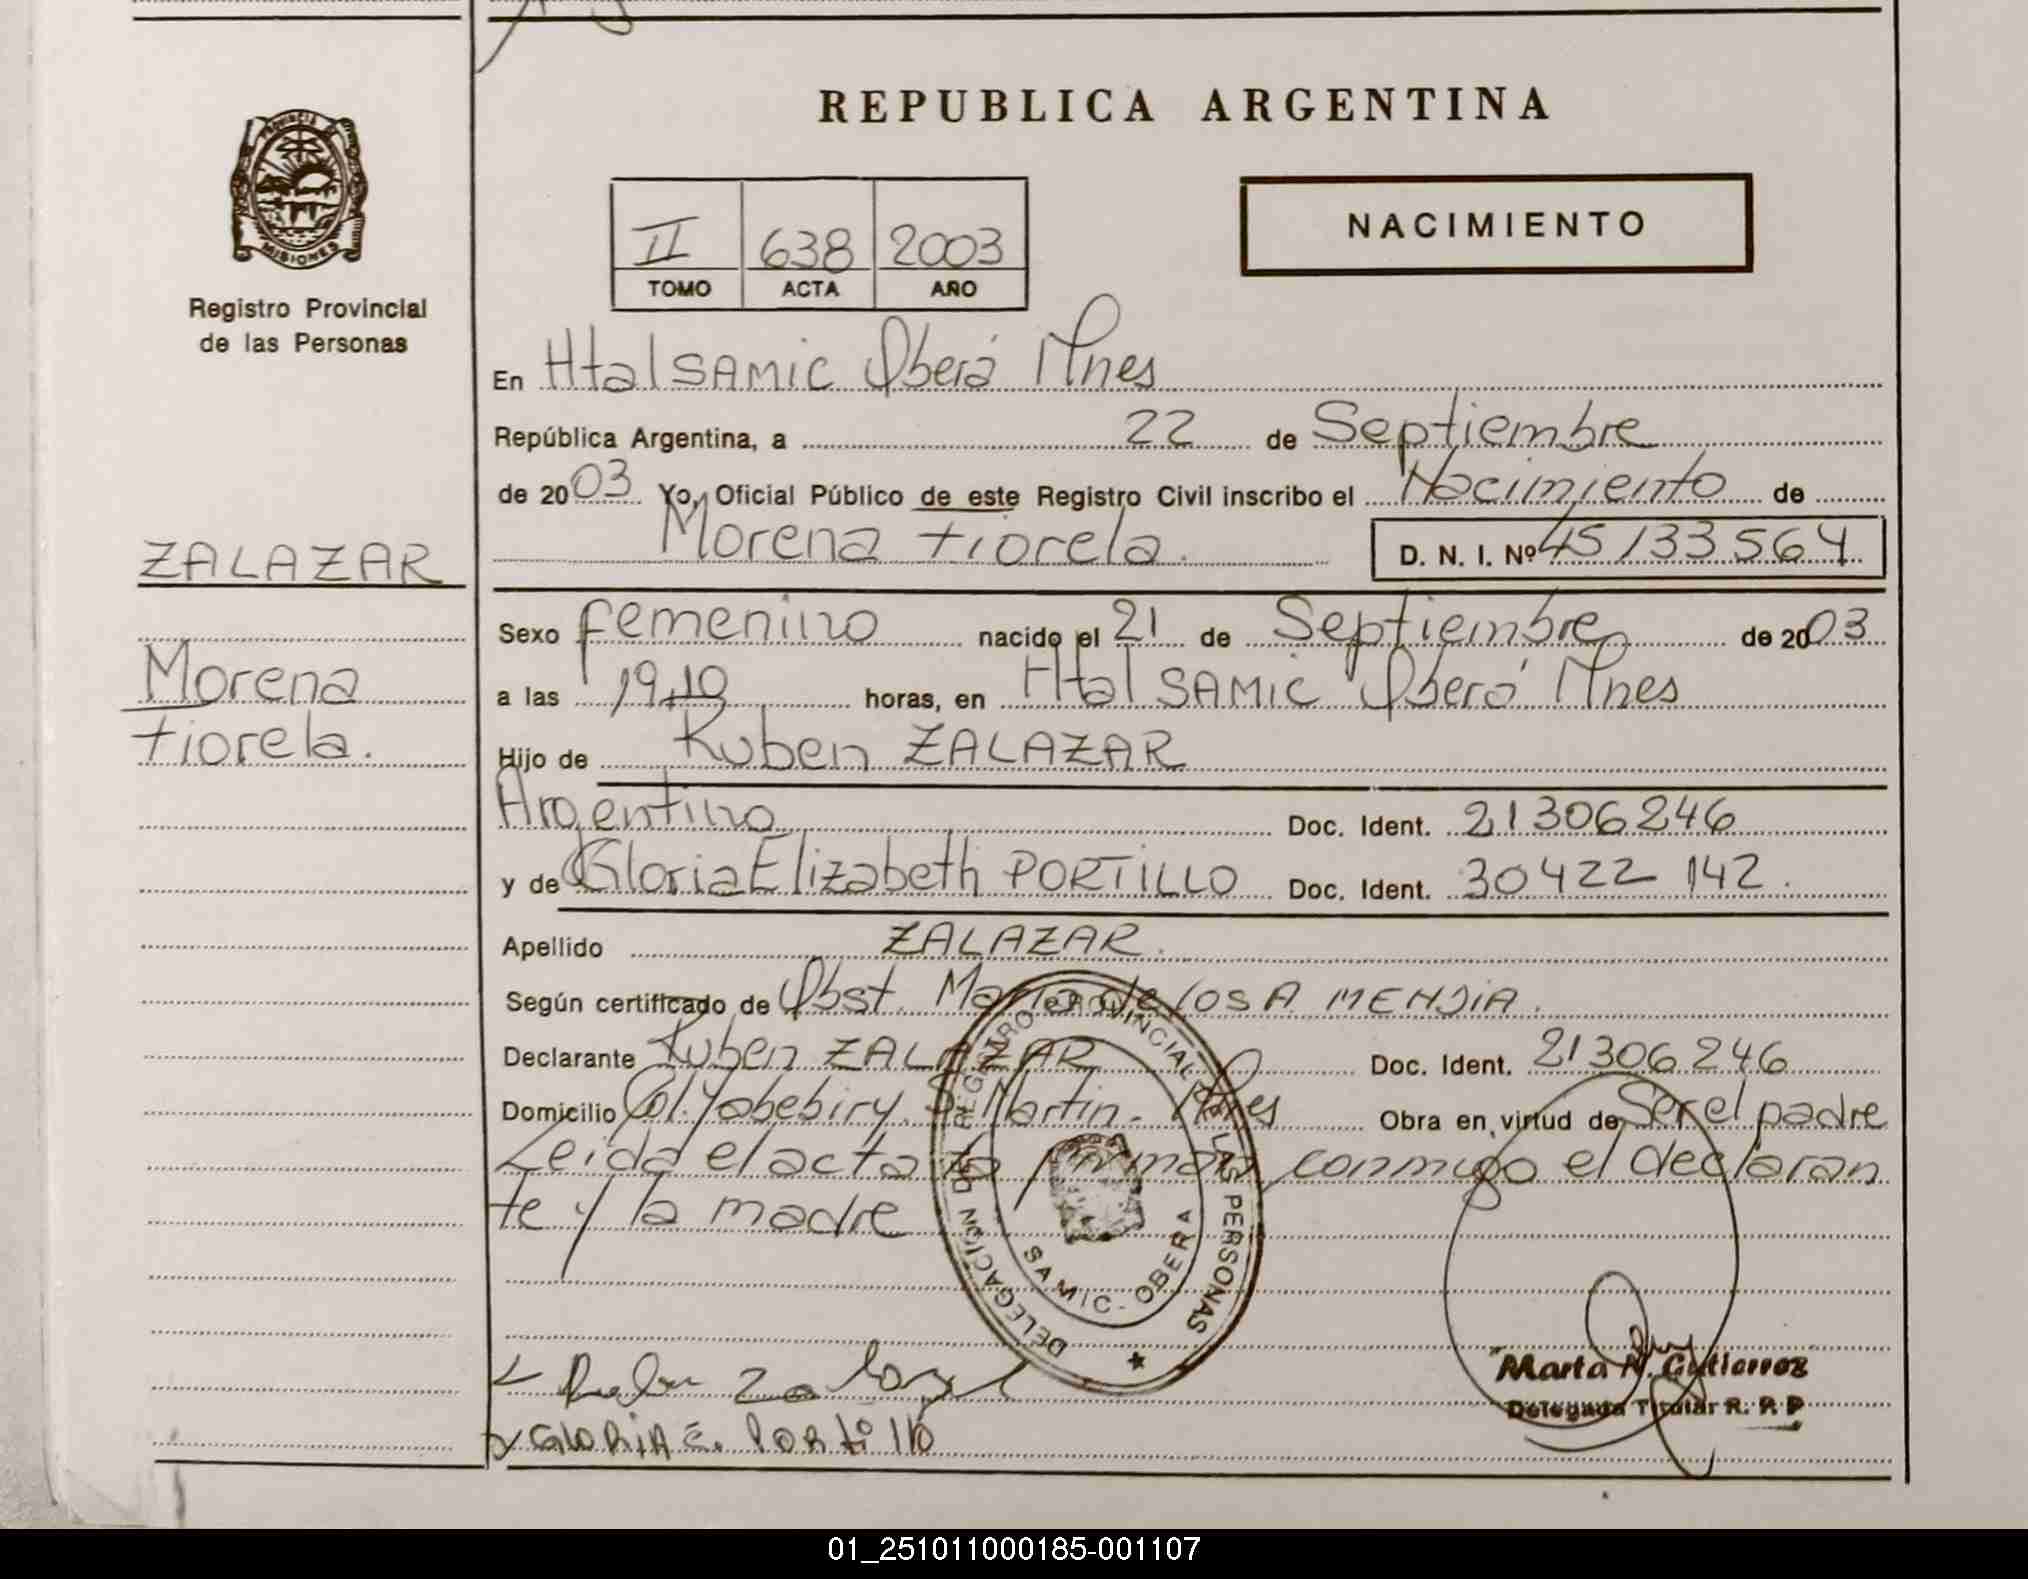 REPUBLICA ARGENTINA
PROVINCIA DE
MISIONES
Registro Provincial
de las Personas
II 638 2003
TOMO ACTA AÑO
NACIMIENTO
En Htal SAMIC Oberá Mnes
República Argentina, a 22 de Septiembre
de 2003 Yo, Oficial Público de este Registro Civil inscribo el Nacimiento de
Morena Fiorela. D. N. I. Nº 45133564
ZALAZAR
Morena
Fiorela.
Sexo femenino nacido el 21 de Septiembre de 2003
a las 19,10 horas, en Htal SAMIC Oberá Mnes
Hijo de Ruben ZALAZAR
Argentino Doc. Ident. 21306246
y de Gloria Elizabeth PORTILLO Doc. Ident. 30422 142.
Apellido ZALAZAR.
Según certificado de Obst. Maria de los A. MENDIA.
Declarante Ruben ZALAZAR Doc. Ident. 21306246
Domicilio Col. Yabebiry. S. Martin. Mnes Obra en virtud de Ser el padre
Leida el acta la firman conmigo el declaran
te y la madre
DELEGACION DEL REGISTRO PROVINCIAL DE LAS PERSONAS
SAMIC - OBERA
Ruben Zalazar
GLORIA E. PORtillo
Marta N. Gutierrez
Delegada Titular R. P. P
01_251011000185-001107